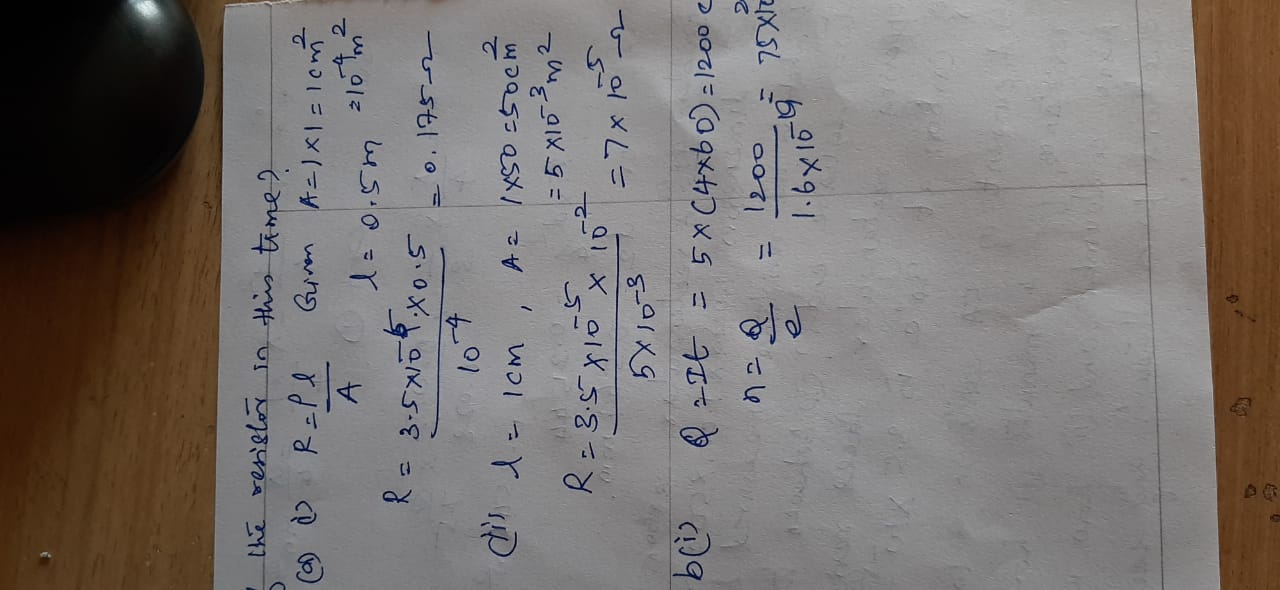 the resistor in this time?
(a) i) R = ρl/A Given A = 1 x 1 = 1cm²
= 10⁻⁴m²
l = 0.5m
R = 3.5x10⁻⁵ x 0.5 / 10⁻⁴ = 0.175Ω
(ii) l = 1cm, A = 1x50 = 50cm²
= 5x10⁻³m²
R = 3.5x10⁻⁵ x 10⁻² / 5x10⁻³ = 7 x 10⁻⁵Ω
b(i) Q = It = 5x(4x60) = 1200 C
n = Q/e = 1200 / 1.6x10⁻¹⁹ = 75x10